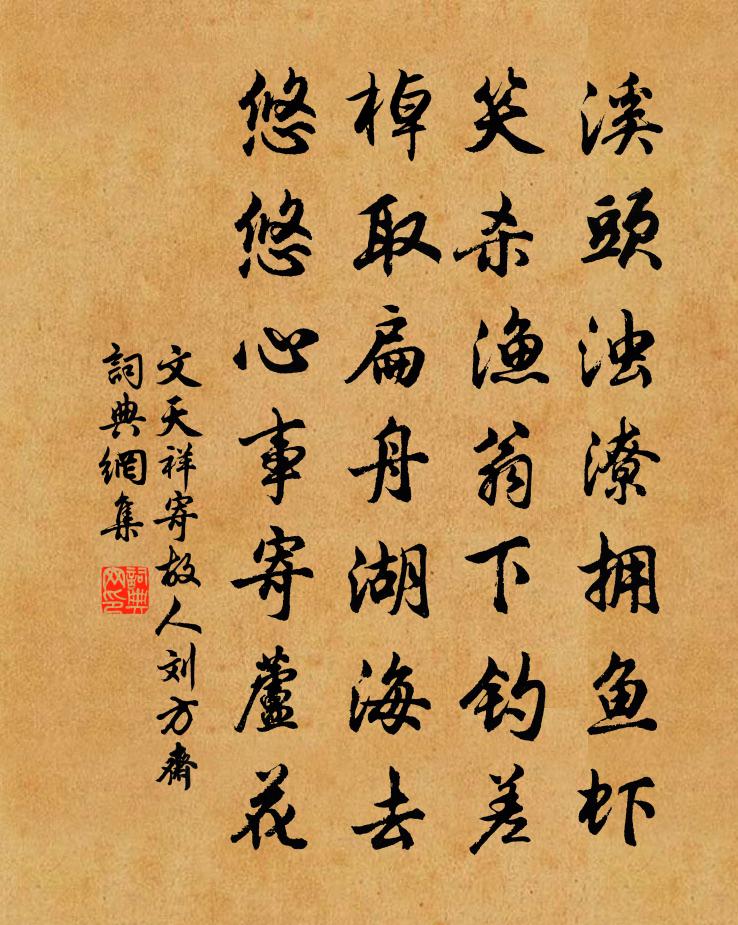 溪頭浊潦拥鱼虾
笑杀渔翁下钓差
棹取扁舟湖海去
悠悠心事寄蘆花
文天祥寄故人刘方齋
詞典網集
詞典网印